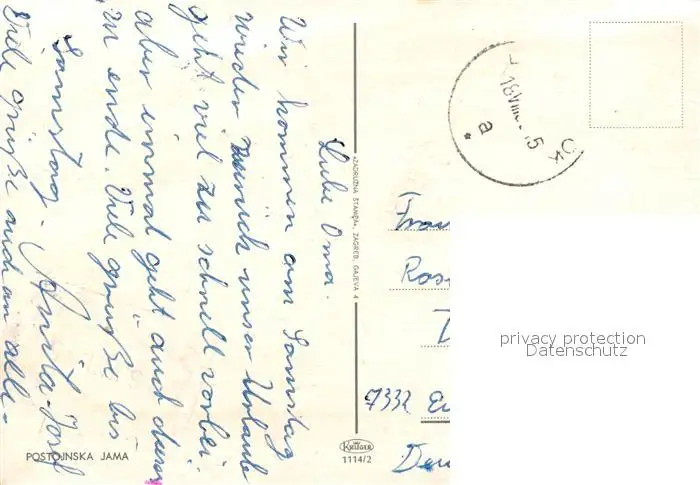 Liebe Oma.
Wir kommen am Samstag
wieder zurück unser Urlaub
geht viel zu schnell vorbei.
aber einmal geht auch dieser
zu ende. Viele grüße bis
Samstag. Anita Josef
Viele grüße auch an alle.
POSTOJNSKA JAMA
»ZADRUŽNA ŠTAMPA«, ZAGREB, GAJEVA 4
KRÜGER
1114/2
18 VIII
5
a
Frau
Ros
7332 Ei
privacy protection
Datenschutz